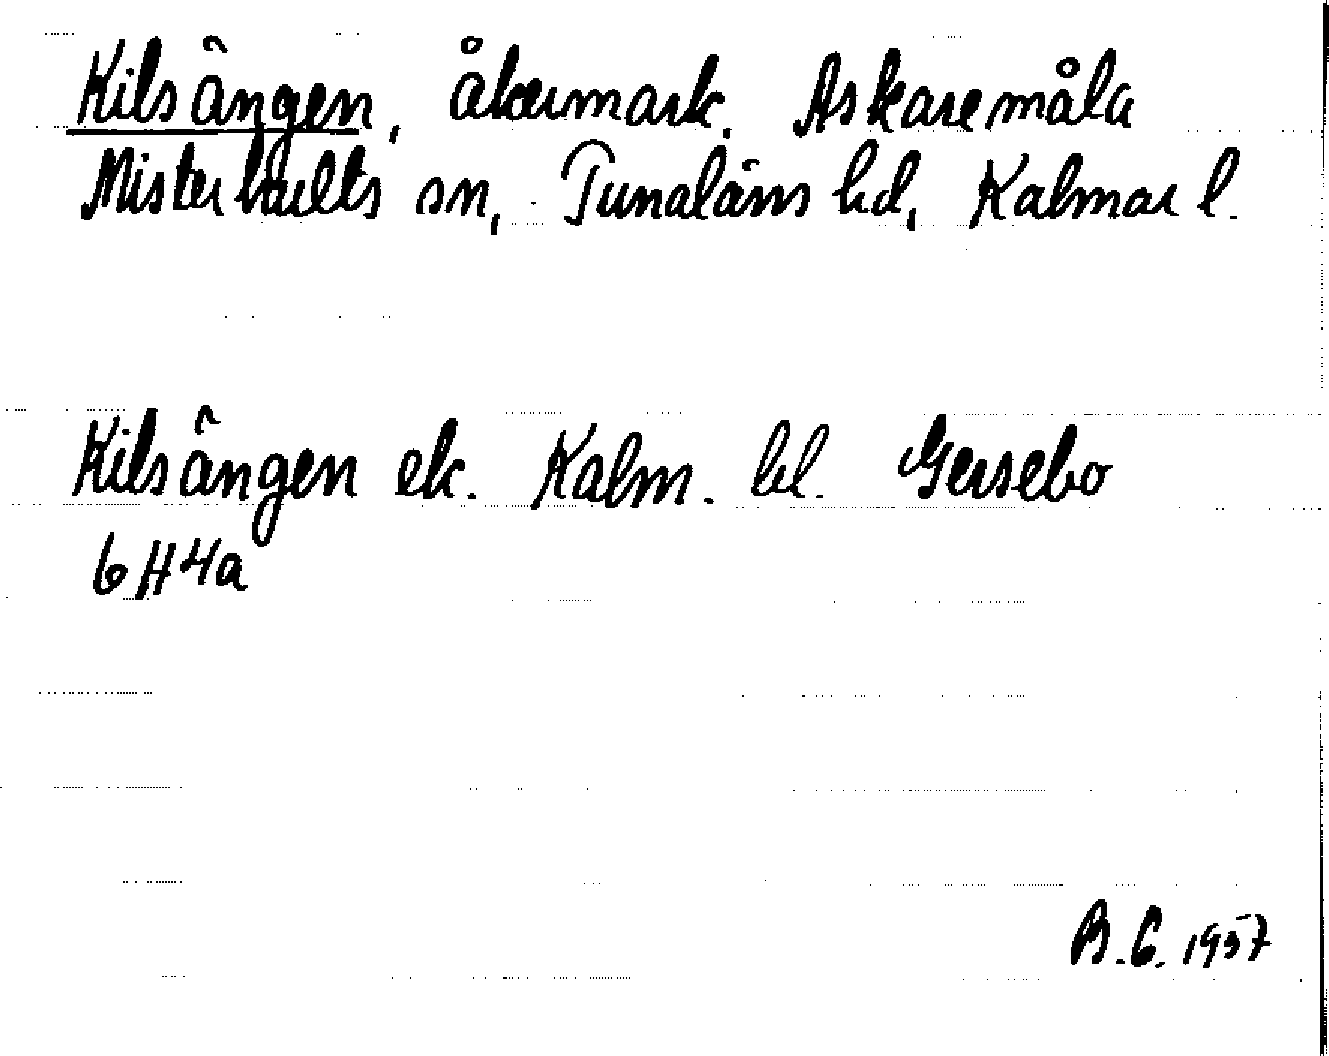 Kilsängen, åkermark. Askaremåla
Misterhults sn, Tunaläns hd, Kalmar l.
Kilsängen ek. Kalm. bl. Gersebo
6H4a
B.G. 1957